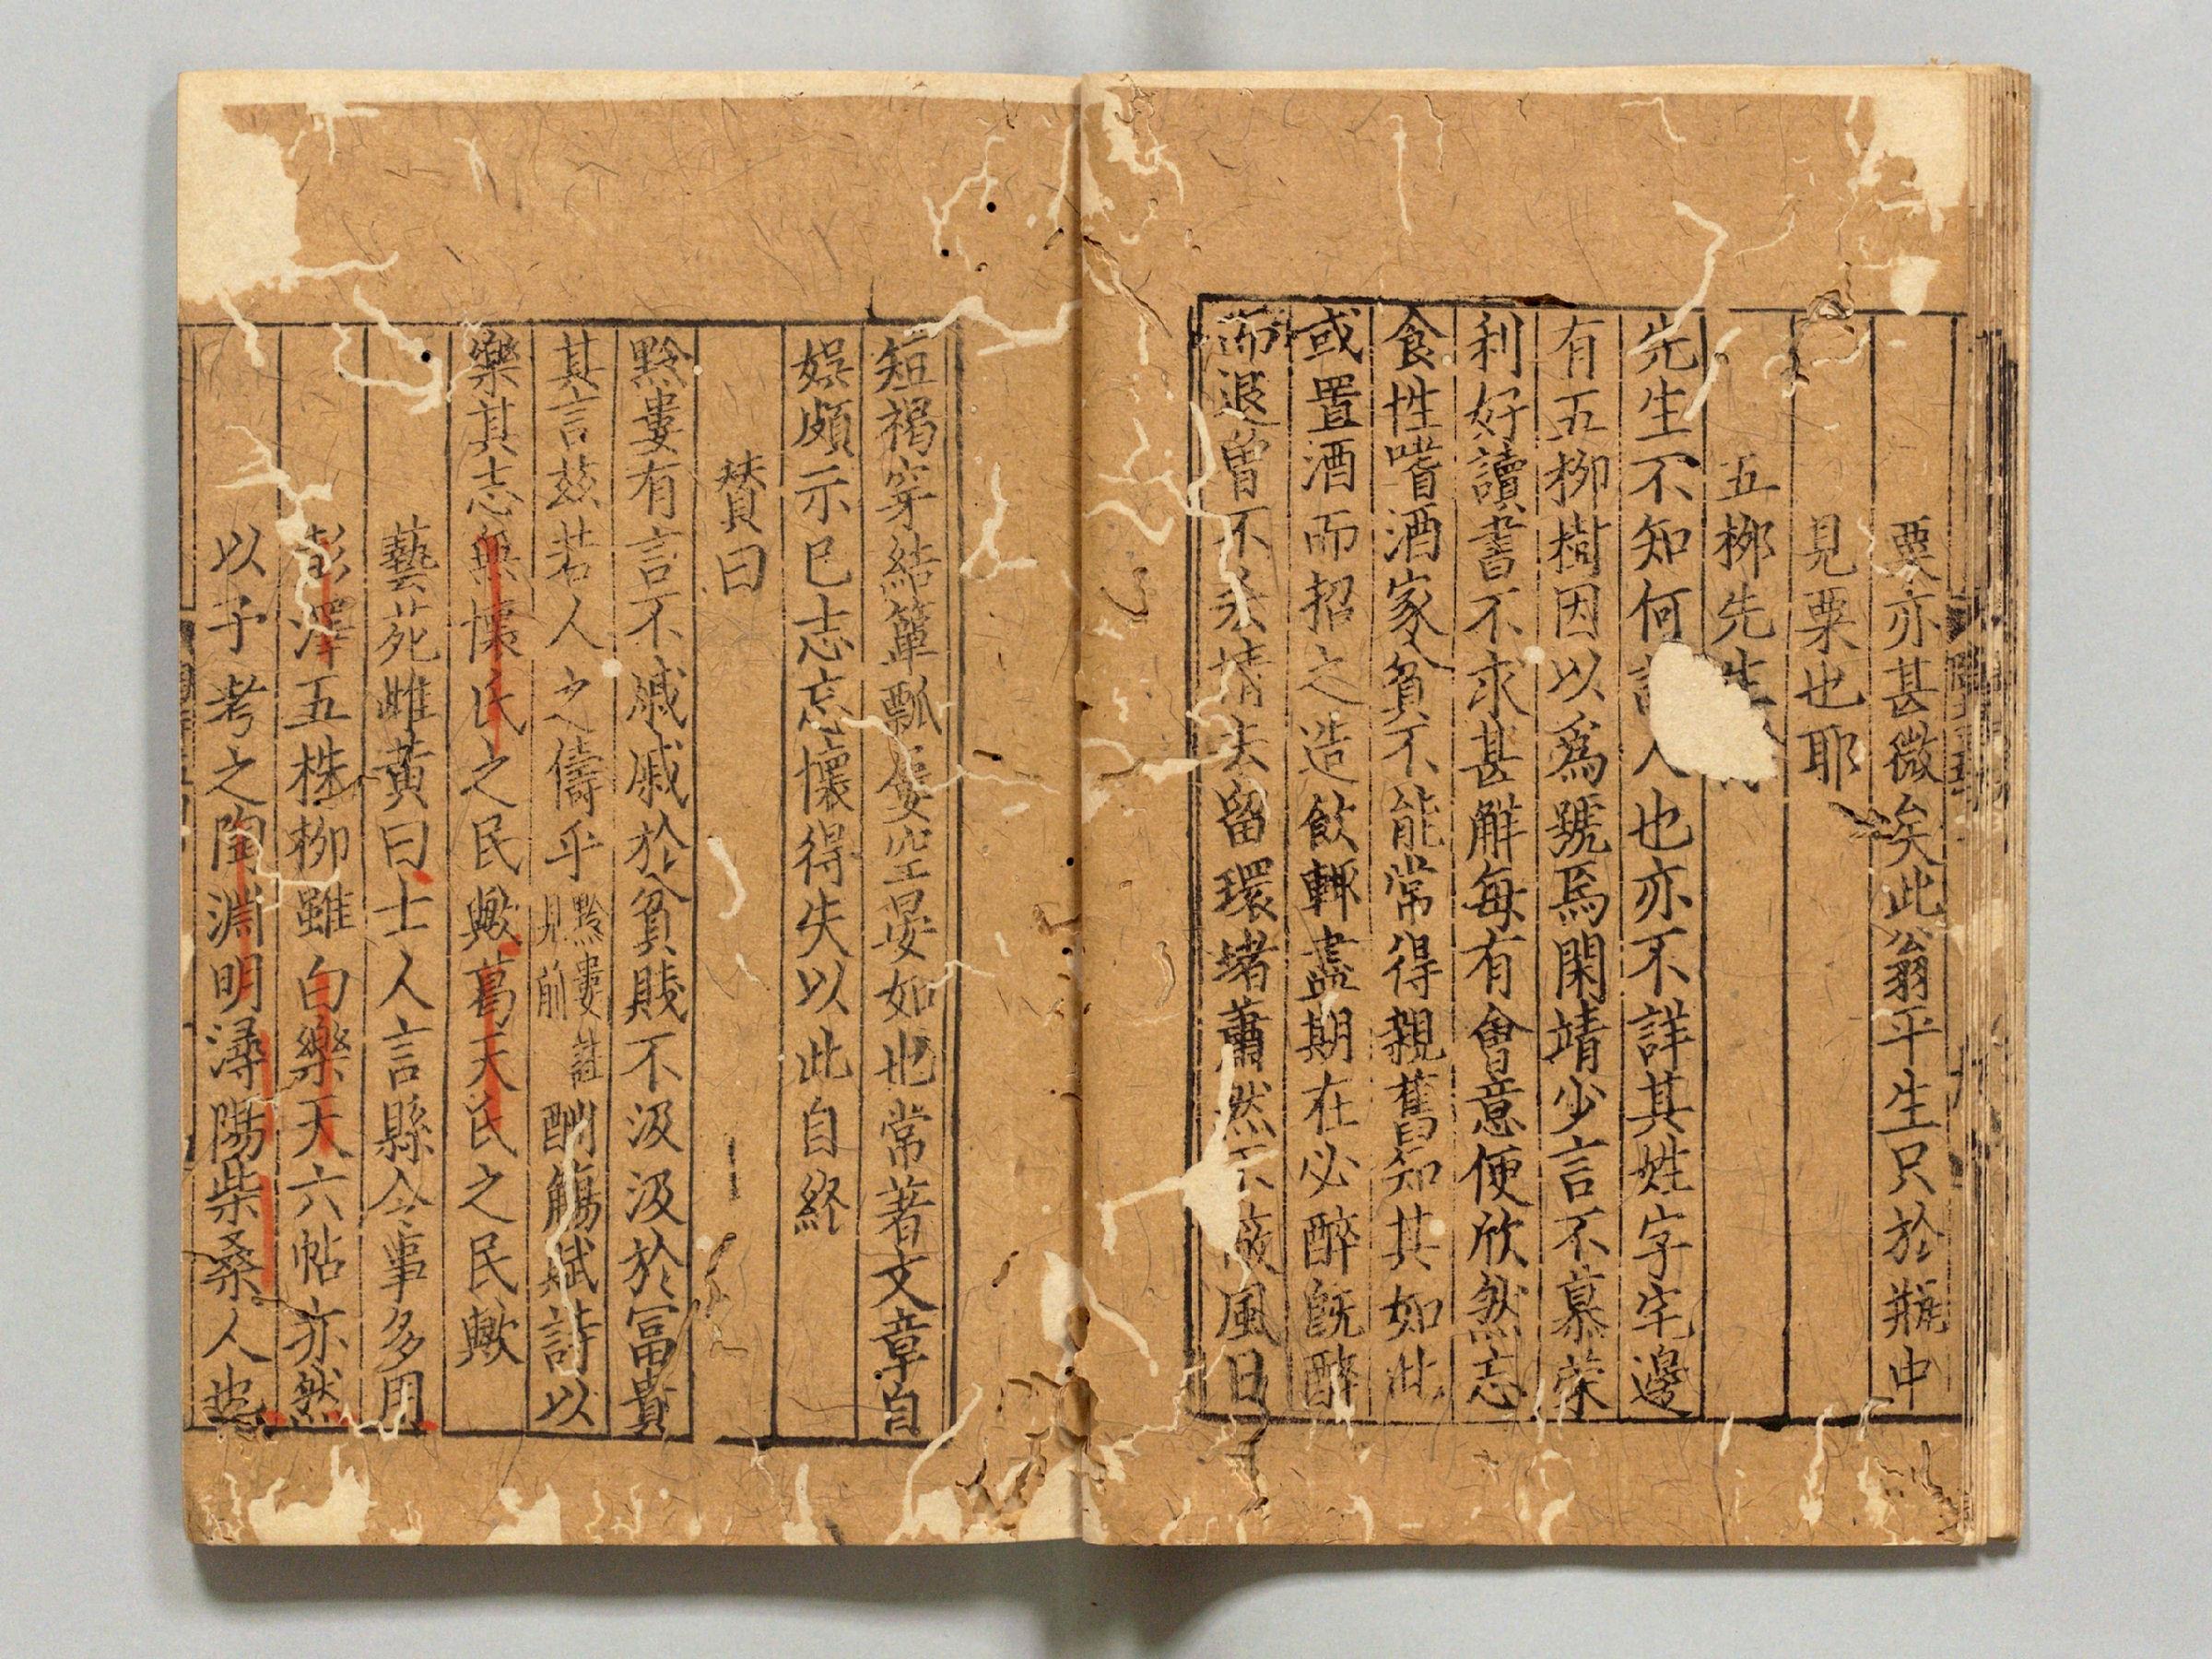 粟亦甚微矣此翁平生只於瓶中
見粟也耶
五柳先生
先生不知何 人也亦不詳其姓字宅邊
有五柳樹因以爲號焉閑靖少言不慕榮
利好讀書不求甚解每有會意便欣然忘
食性嗜酒家貧不能常得親舊知其如此
或置酒而招之造飲輒盡期在必醉旣醉
而退曾不 情去留環堵蕭然不 風日
短褐穿結簞瓢屢空晏如也常著文章自
娛頗示己志忘懷得失以此自終
賛曰
黔婁有言不戚戚於貧賤不汲汲於冨貴
其言玆若人之儔乎黔婁註見前酣觴賦詩以
樂其志無懷氏之民歟葛天氏之民歟
藝苑雌黃曰士人言縣令事多用
彭澤五株柳雖白樂天六帖亦然
以予考之陶淵明潯陽柴桑人也